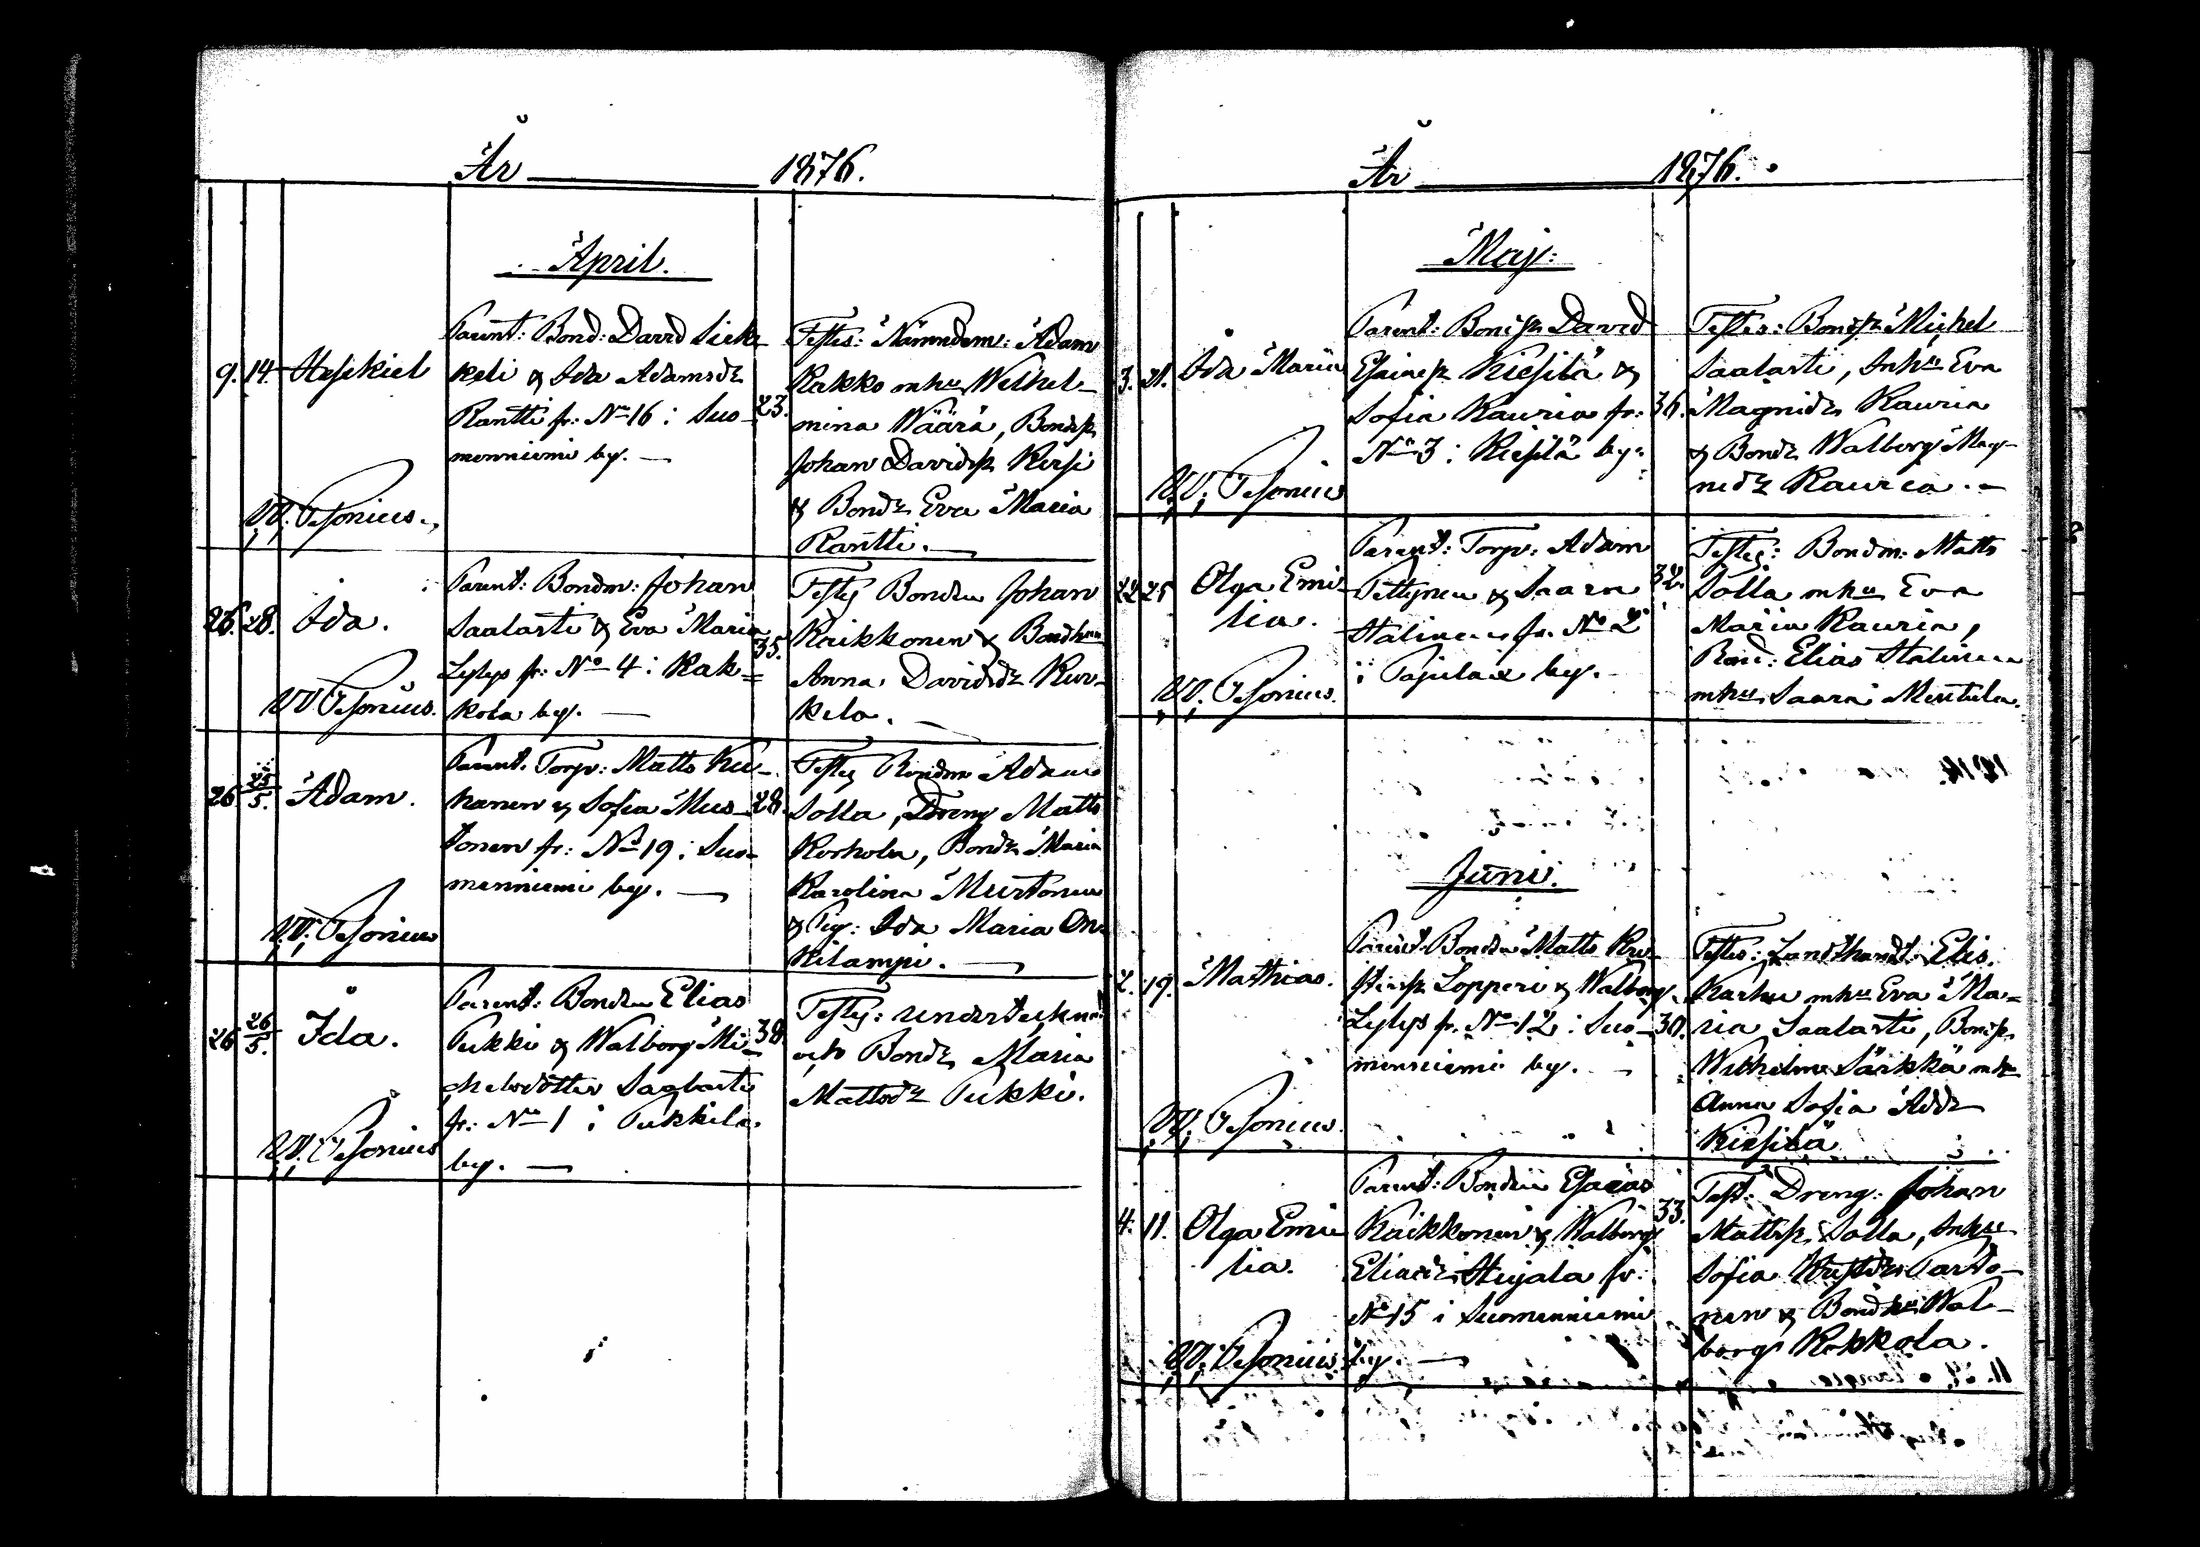 År 1876.
April.
9. 14. Hesekiel
Parent: Bond: David Sirk-
keli & Ida Adamsdr
Rantti fr: No 16 i Suo-
menniemi by. —
23.
Testes: Nämndem: Adam
Kakko m hu Wilhel-
mina Wäärä, Bondes.
Johan Davidss. Kersi
& Bondr Eva Maria
Rantti. —
W. Pesonius.
26. 28. Ida.
Parent: Bondm: Johan
Saalasti & Eva Maria
Lylys fr: No 4 i Kak-
kola by. —
35.
Testes Bonden Johan
Kaikkonen & Bondhun
Anna Davidsdr Kur-
kela. —
W Pesonius.
26 25/5. Adam.
Parent. Torp: Matts Ku-
hanen & Sofia Mus-
tonen fr: No 19 i Suo-
menniemi by. —
28.
Testes Bondm Adam
Solla, Dreng Matts
Korhola, Bondr Maria
Karolina Murtonen
& Pig: Ida Maria On-
kilampi. —
W. Pesonius
26 26/5. Ida.
Parent: Bonden Elias
Pukki & Walborg Mi-
chelsdotter Saalasti
fr: No 1 i Pukkila
by. —
38
Testes: undertecknad
och Bondr Maria
Mattsdr Pukki.
W. Pesonius
År 1876.
Maj:
3. 21. Ida Maria
Parent: Bondes. David
Esaiess. Kiesilä &
Sofia Kauria fr:
No 3 i Kiesilä by.
36.
Testes: Bondes. Michel
Saalasti, Inhu Eva
Magnidr Kauria
& Bondr Walborg Mag-
nidr Kauria. —
W. Pesonius
22 25 Olga Emi-
lia.
Parent: Torp: Adam
Pettynen & Saara
Halinen fr. No 2
i Pajula by.
32.
Testes: Bondm: Matts
Solla m hu Eva
Maria Kauria,
Bond: Elias Halinen
m hu Saara Mentula.
W. Pesonius.
Juni.
2. 19. Mathias.
Parent: Bonden Matts Kri-
stierss. Lopperi & Walborg
Lylys fr. No 12 i Suo-
menniemi by. —
30.
Testes: Landthandl: Elis.
Karhu m hu Eva Ma-
ria Saalasti, Bondes.
Wilhelm Särkkä m hu
Anna Sofia Addr
Kiesilä
W. Pesonius.
4. 11. Olga Emi-
lia.
Parent: Bonden Esaias
Kaikkonen & Walborg
Eliaedr Heijala fr:
No 15 i Suomenniemi
by. —
33.
Test: Dreng: Johan
Mattss. Solla, Inhu
Sofia Parto-
nen & Bondhu Wal-
borg Kokkola.
W. Pesonius